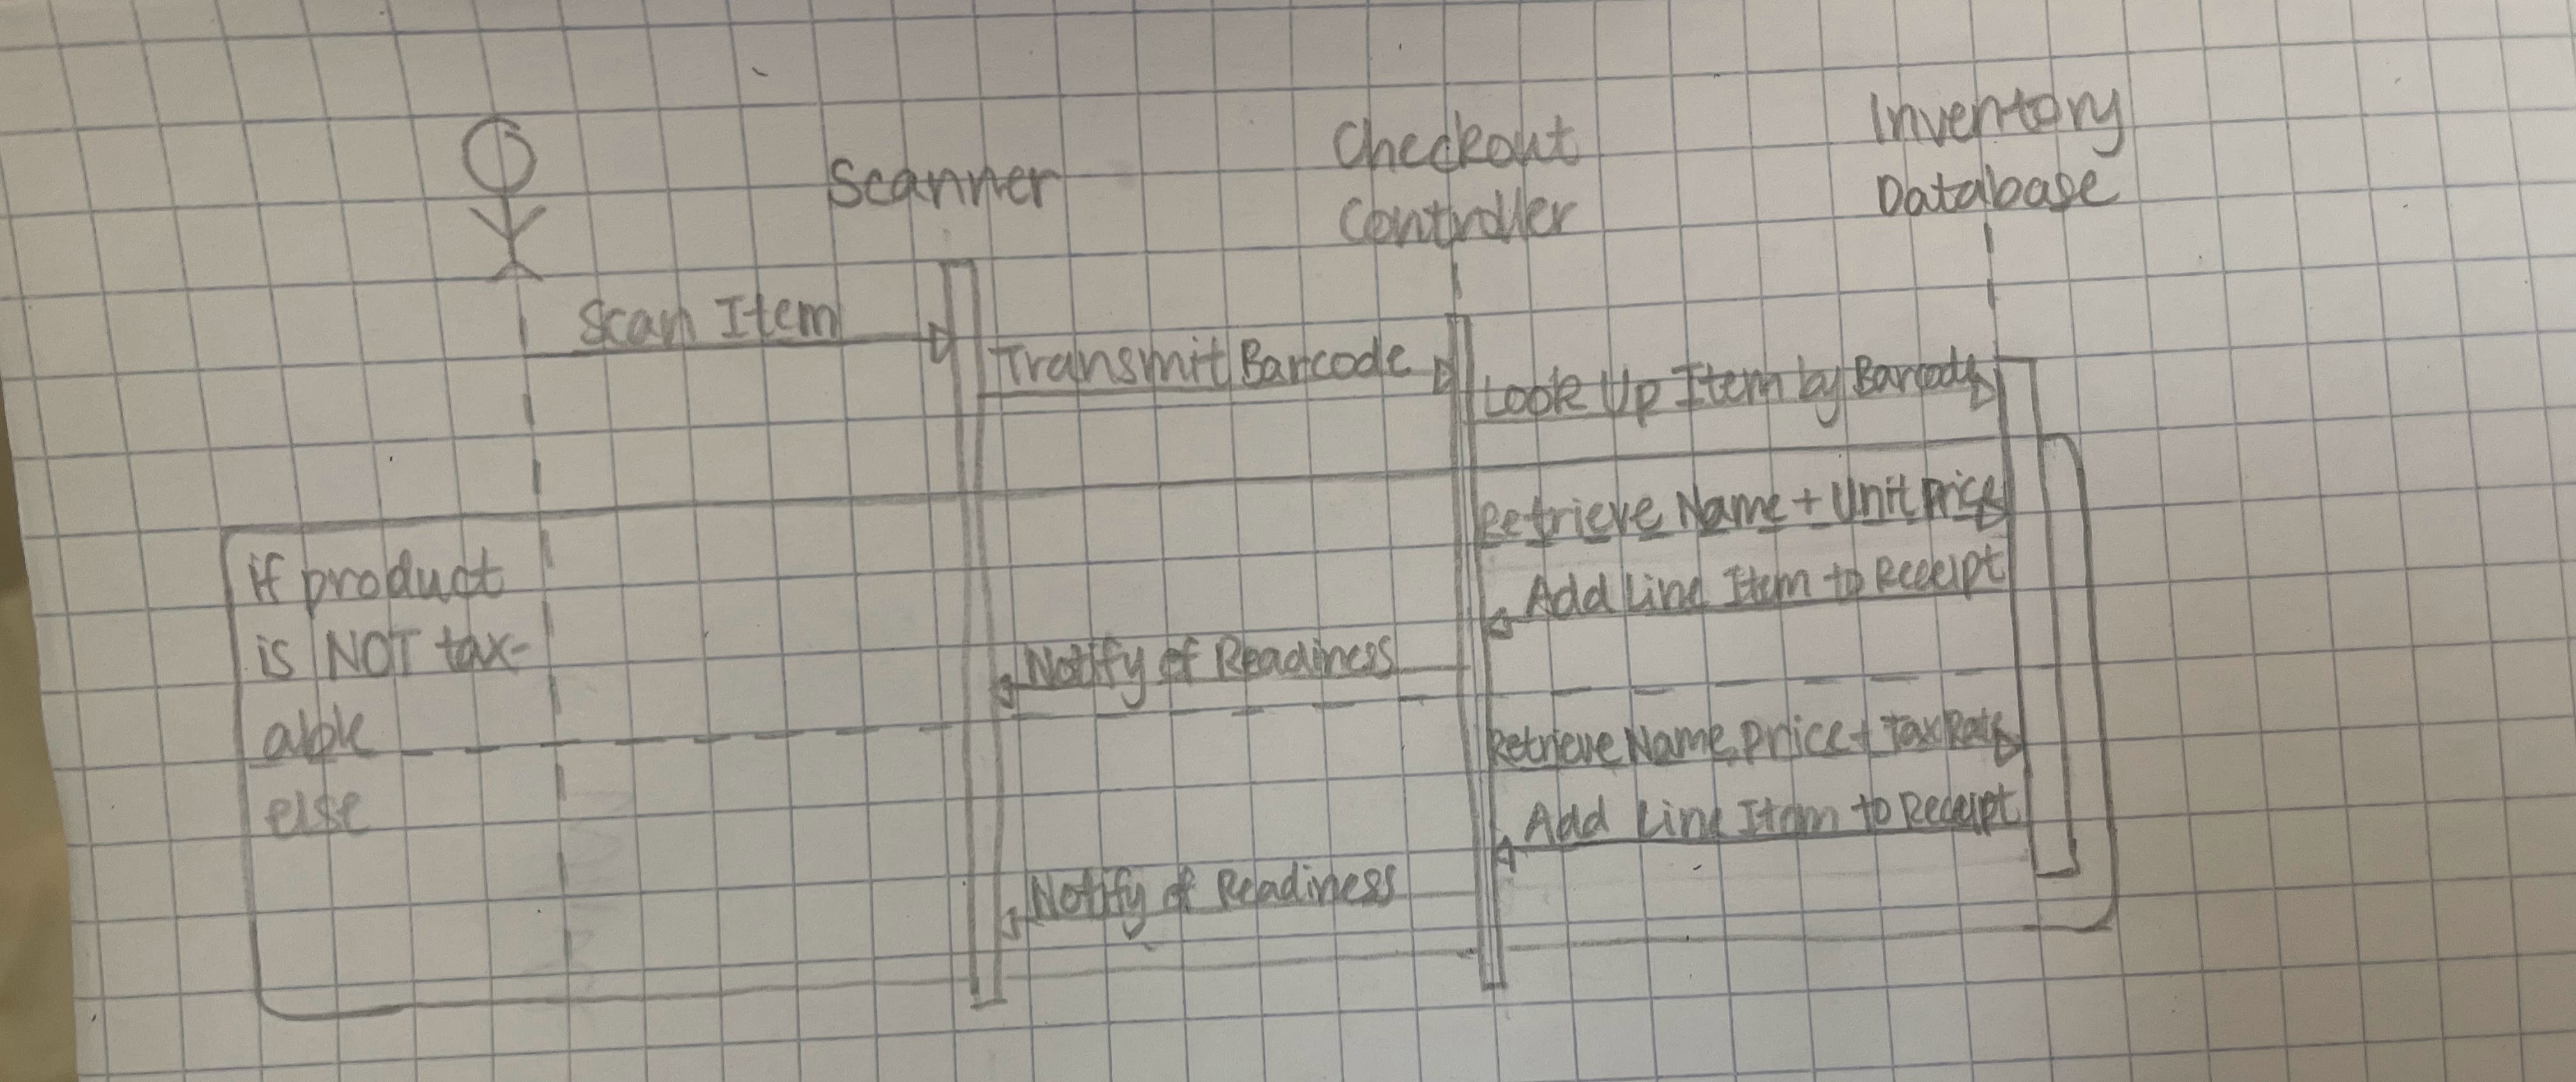 Scanner
Checkout
Controller
Inventory
Database
Scan Item
Transmit Barcode
Look Up Item by Barcode
if product
is NOT tax-
able
else
Retrieve Name + Unit Price
Add Line Item to Receipt
Notify of Readiness
Retrieve Name, Price + Tax Rate
Add Line Item to Receipt
Notify of Readiness